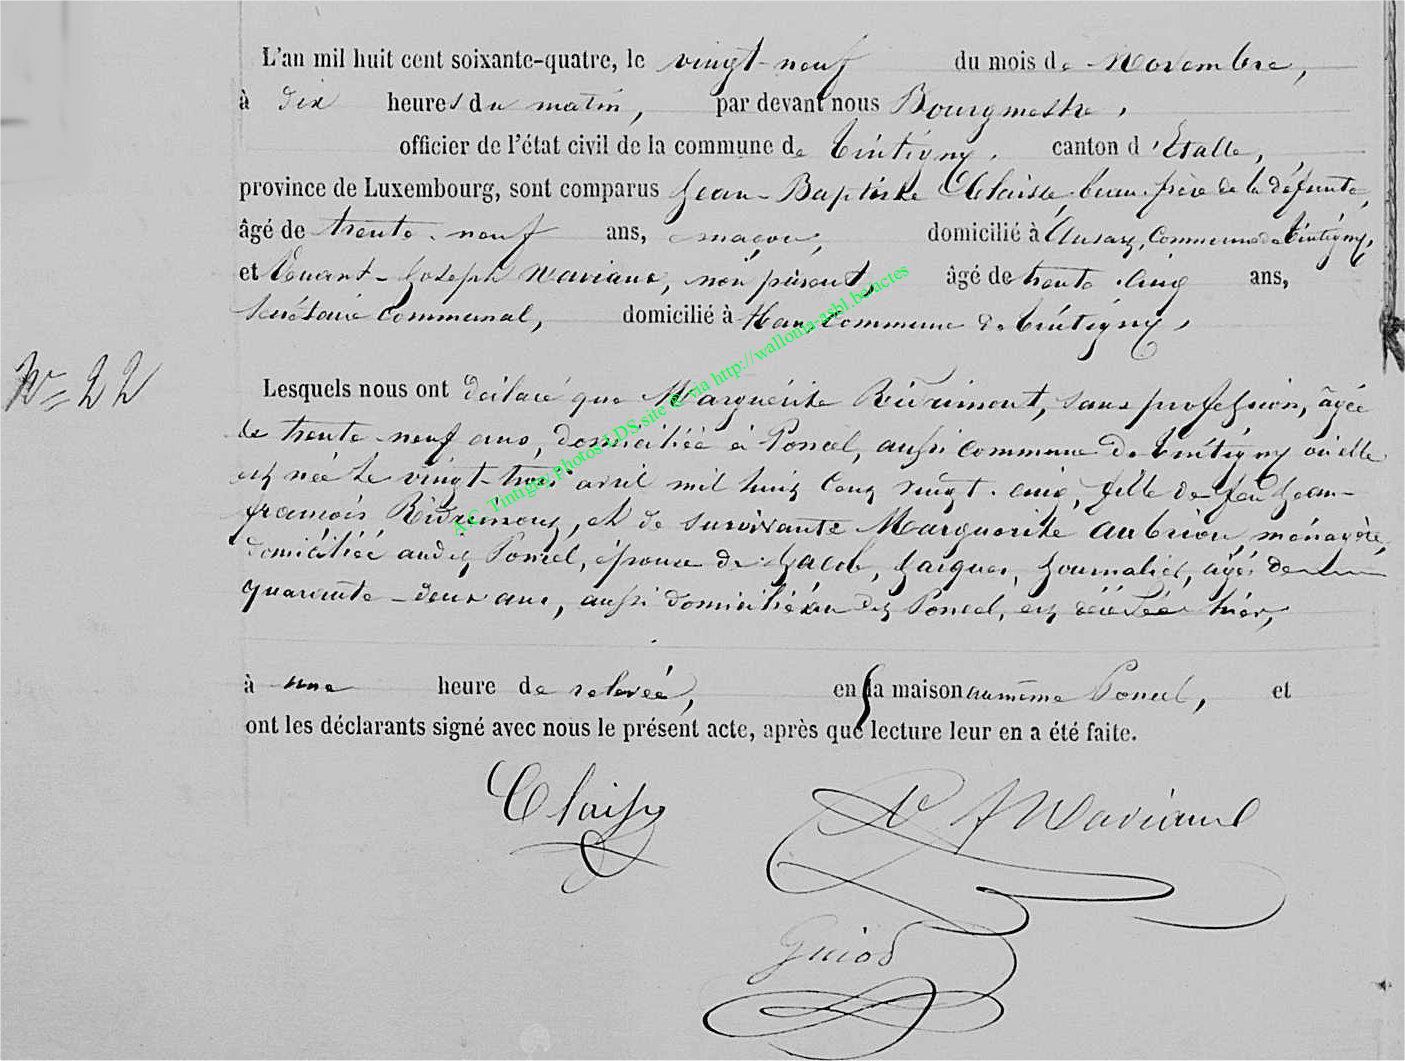 L'an mil huit cent soixante-quatre, le vingt-neuf du mois de Novembre,
à dix heures du matin, par devant nous Bourgmestre,
officier de l'état civil de la commune de Tintigny, canton d'Etalle,
province de Luxembourg, sont comparus Jean-Baptiste Claisse, beau-frère de la défunte,
âgé de trente-neuf ans, maçon, domicilié à Ansart, Commune de Tintigny,
et Joseph Waviaux, non parent, âgé de trente-cinq ans,
Secrétaire Communal, domicilié à Han, Commune de Tintigny,
N° 22
Lesquels nous ont déclaré que Marguérite, sans profession, âgée
de trente-neuf ans, domiciliée à Poncel, aussi commune de Tintigny où elle
est née le vingt-trois avril mil huit cent vingt-cinq, fille de feu Jean-
françois, et de survivante Marguerite Aubrion, ménagère,
domiciliée audit Poncel, épouse de Jacob, Jacques, Journalier, âgé de
quarante-deux ans, aussi domicilié au dit Poncel, est décédée hier,
à une heure de relevée, en la maison au même Poncel, et
ont les déclarants signé avec nous le présent acte, après que lecture leur en a été faite.
Claisse
Waviaux
Guiot
A.C. Tintigny Photos LDS site @ via http://wallonia-asbl.be/actes